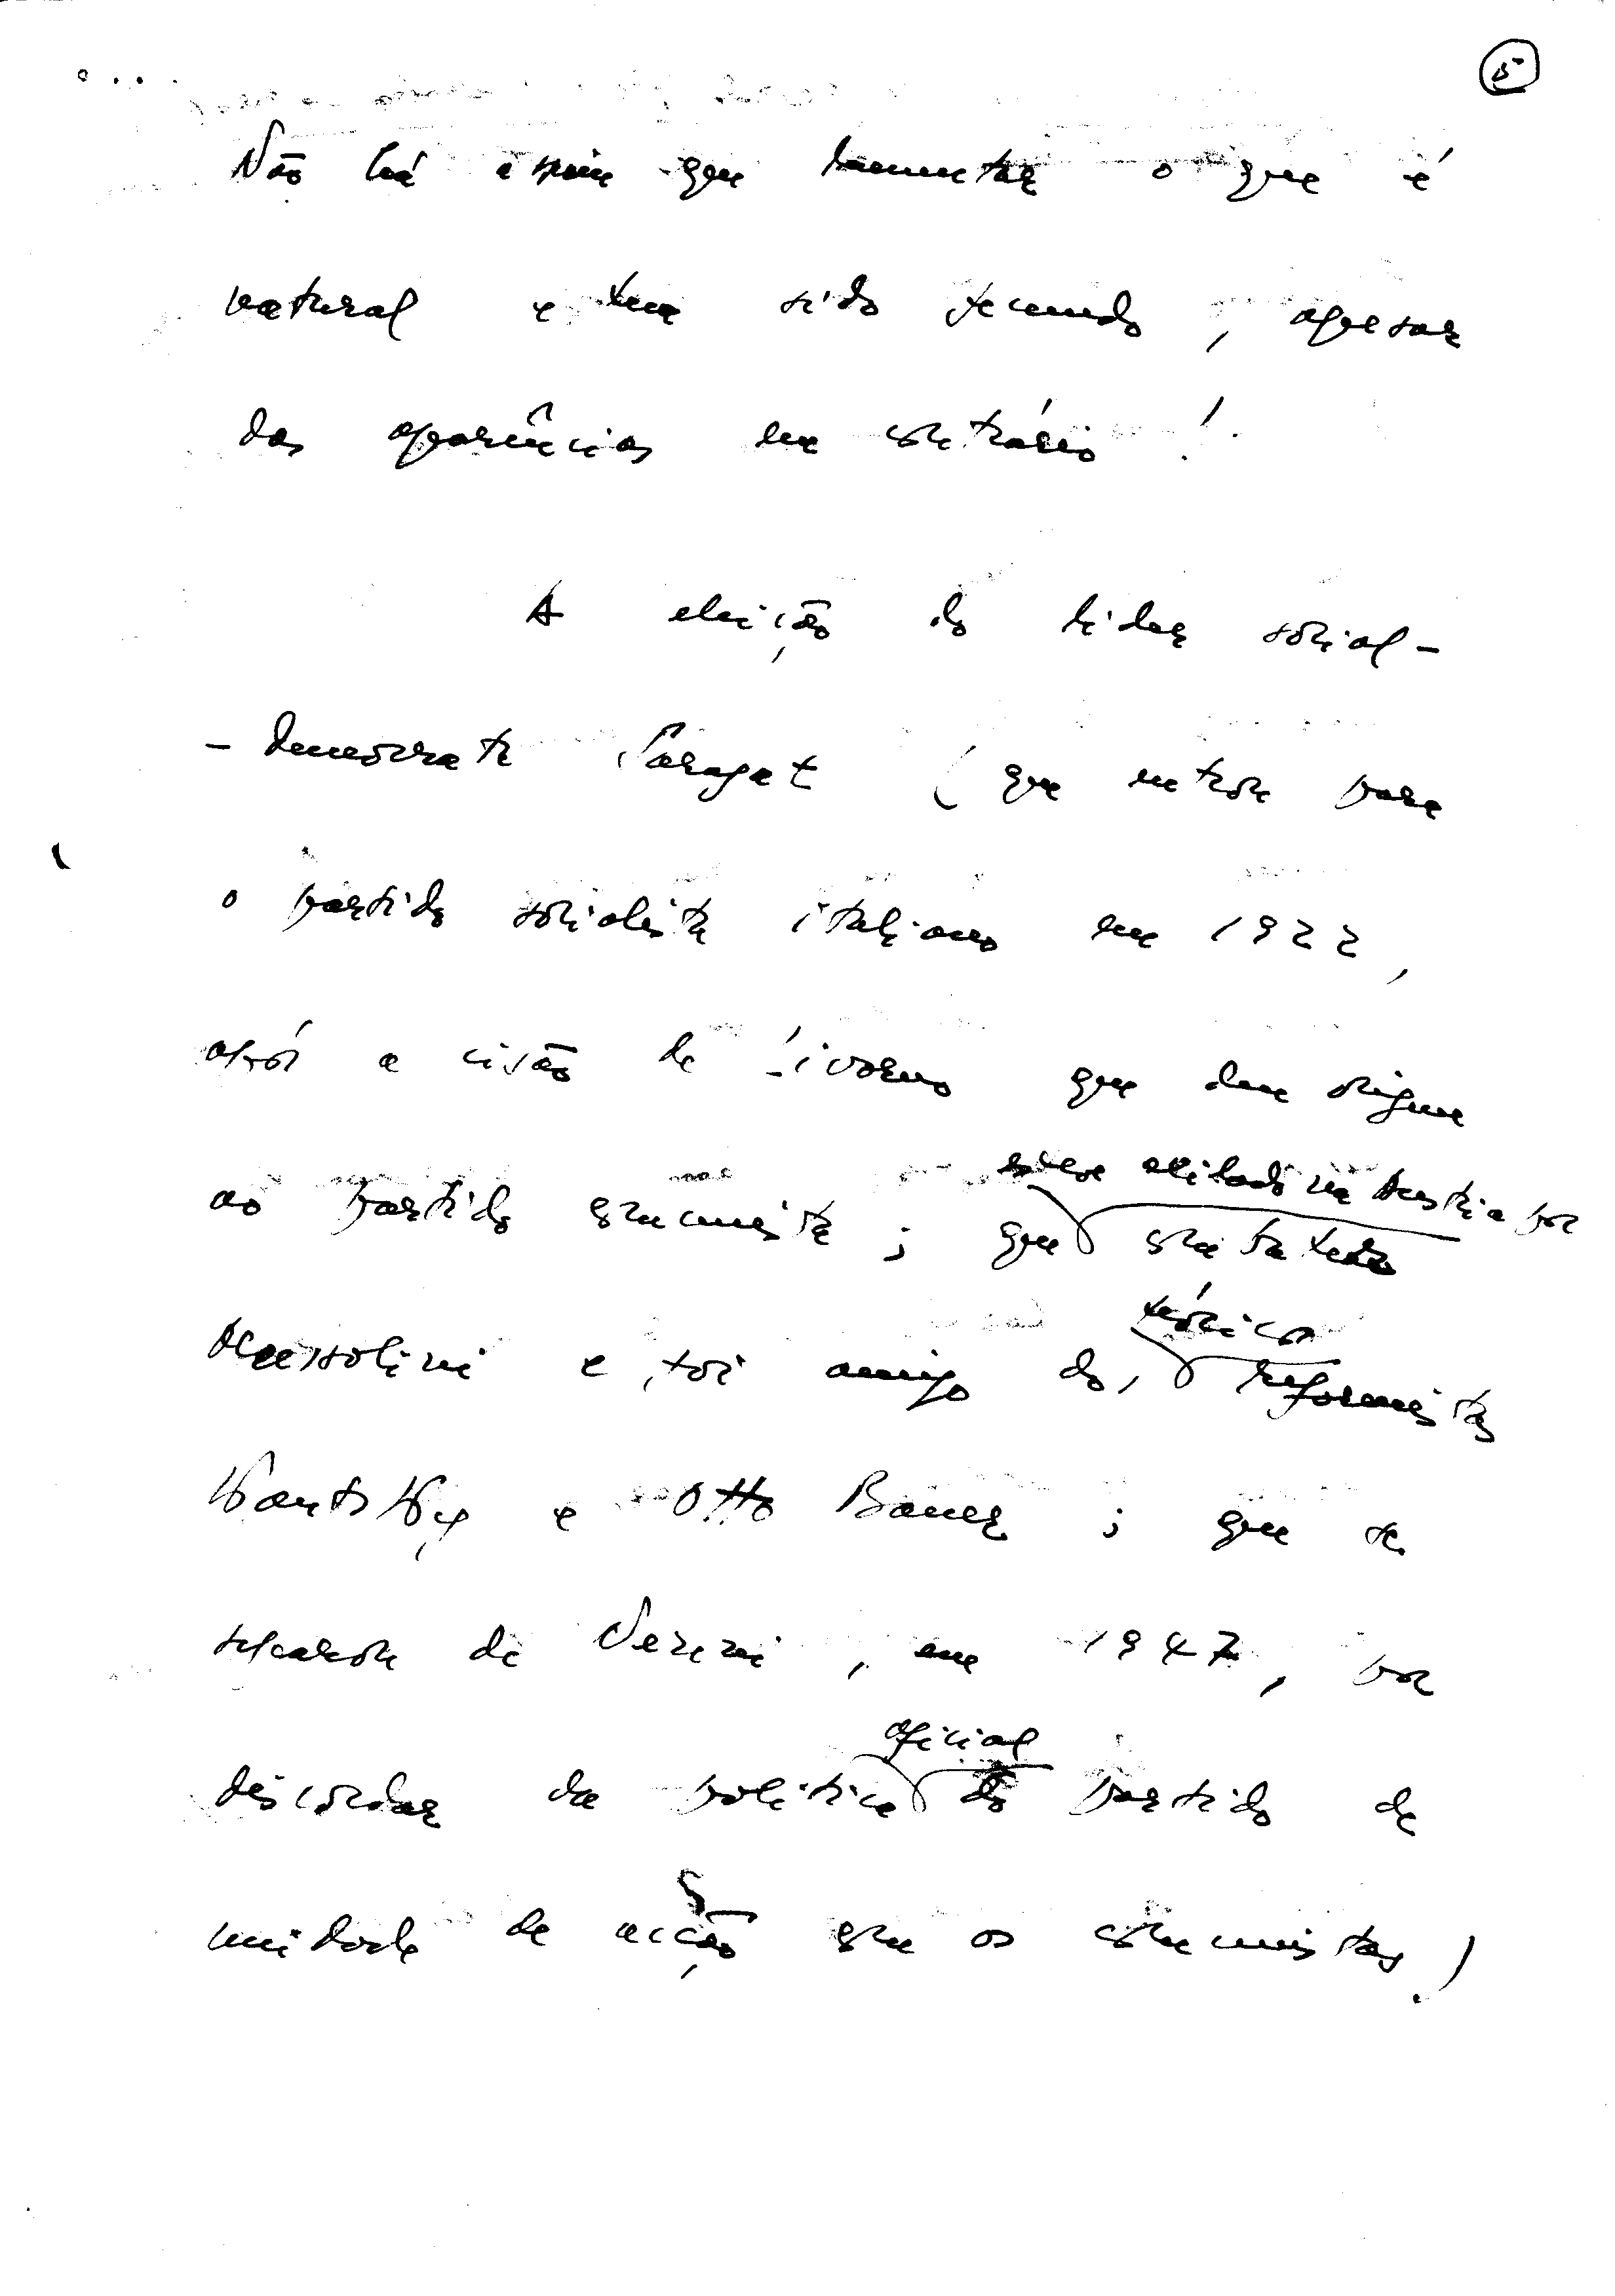 5
Não há assim que lamentar o que é
natural e tem sido fecundo, apesar
das aparências em contrário!
A eleição do lider social-
-democrata Saragat (que entrou para
o partido socialista italiano em 1922,
após a cisão de Livorno que deu origem
ao partido comunista; que
esteve exilado na Austria por
combater
Mussolini e foi amigo dos
teóricos
reformistas
Kautsky e Otto Bauer; que se
separou de Nenni, em 1947, por
discordar da politica
oficial
do partido de
unidade de acção com os comunistas.)